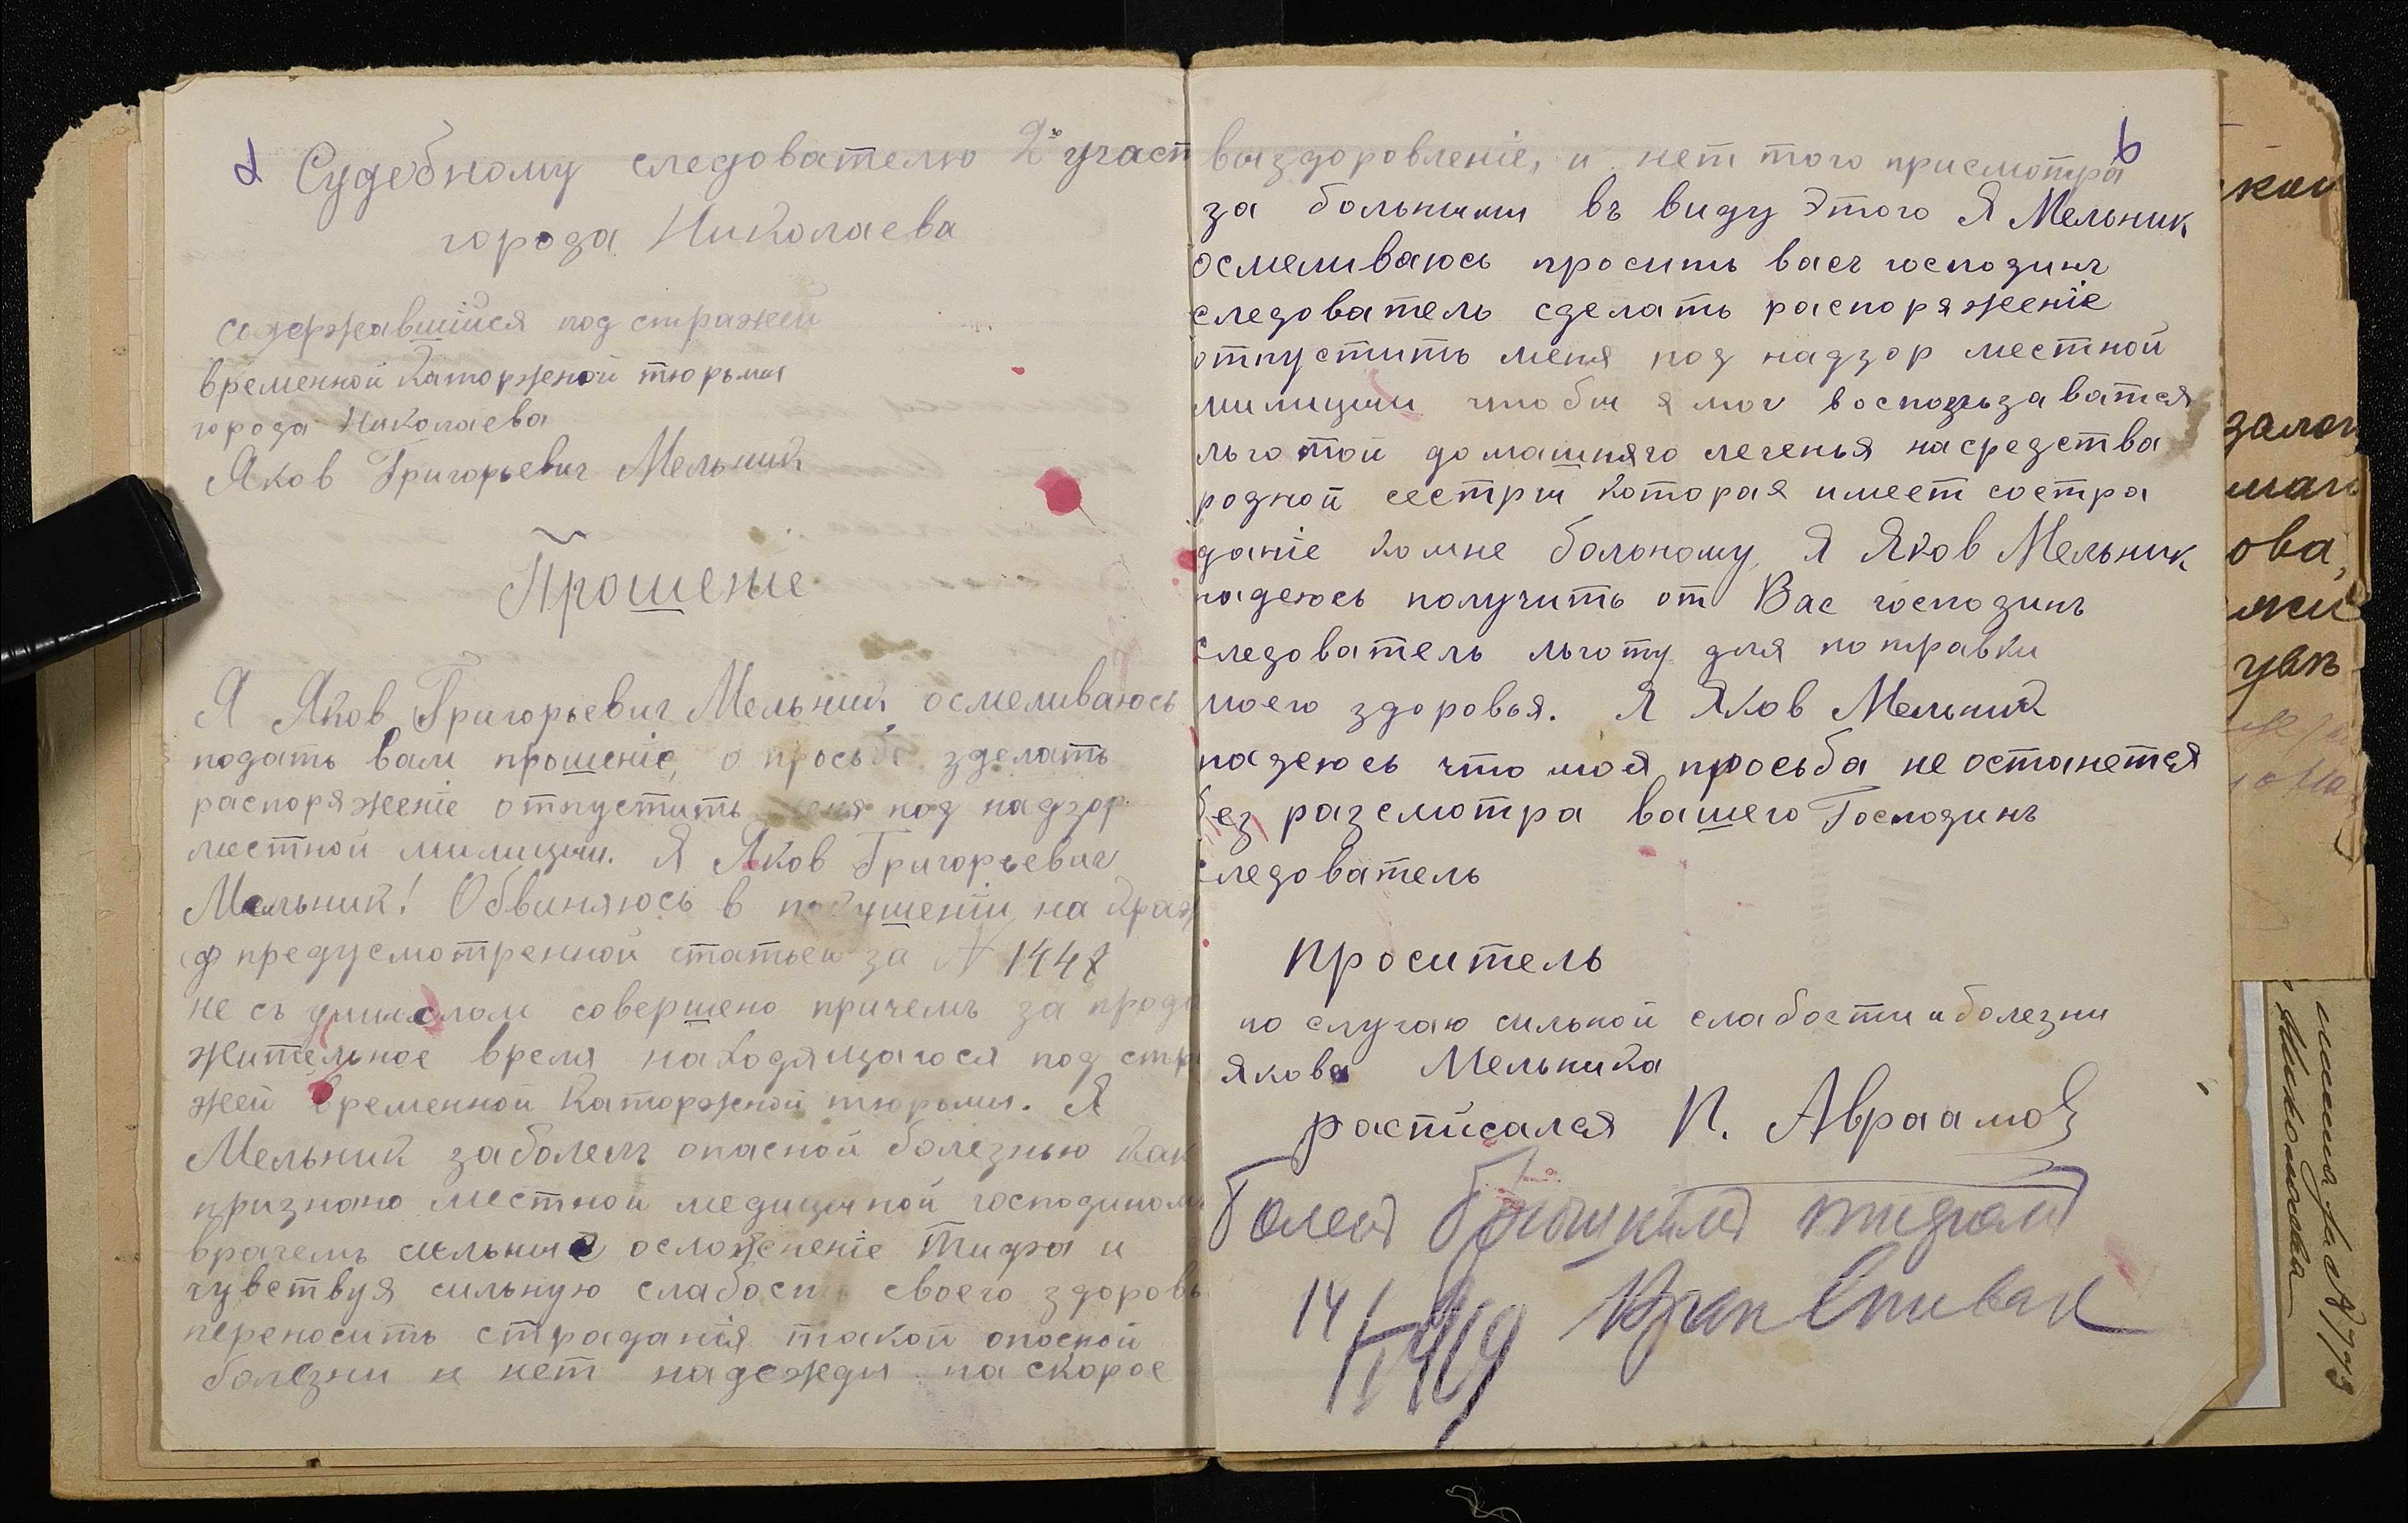 Судебному следователю 2го участ
города Николаева
содержавшийся под стражей
временной Каторжной тюрьмы
города Николаева
Яков Григорьевич Мельник
Прошеніе
Я Яков Григорьевич Мельник осмеливаюсь
подать вам прошеніе, о просьбе зделать
распоряженіе отпустить меня под надзор
местной милиции. Я Яков Григорьевич
Мельник! Обвиняюсь в покушеніи на Краж
предусмотренной статьей за № 1448
не съ умыслом совершено причемъ за продо
жительное время находящагося под стра
жей временной Каторжной тюрьмы. Я
Мельник заболелъ опасной болезнью как
признано местной медициной господином
врачемъ сильные осложненіе Тифа и
чувствуя сильную слабость своего здоровь
переносить страданія такой опасной
болезни и нет надежды на скорое
выздоровленіе, и нет того присмотра
за больными въ виду Этого Я Мельник
осмеливаюсь просить васъ господинъ
следователь сделать распоряженіе
отпустить меня под надзор местной
милиции чтобы я мог воспользаватся
льготой домашняго леченья насредства
родной сестры которая имеет состра
даніе комне больному, Я Яков Мельник
надеюсь получить от Вас господинъ
следователь льготу для поправки
моего здоровья. Я Яков Мельник
надеюсь что моя просьба не останется
без разсмотра вашего Господинъ
следователь
Проситель
по случаю сильной слабости и болезни
Якова Мельника
расписался И. Авраамов
Болен брюшным тифом
14/IV 1919 Врач Спивак
кой
залог
ова,